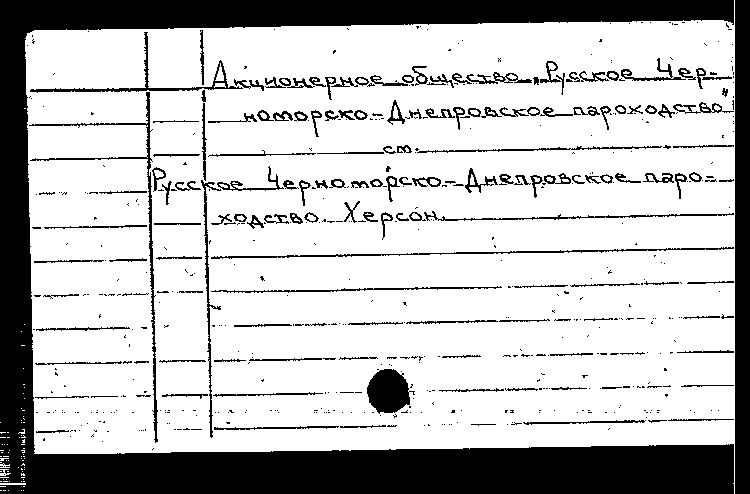 Акционерное общество „Русское Чер-
номорско-Днепровское пароходство"
см.
Русское Черноморско-Днепровское паро-
ходство. Херсон.